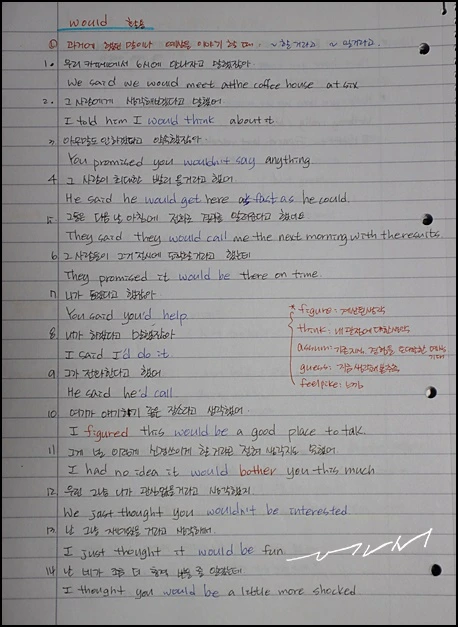 would 활용
① 과거에 했던 말이나 예상을 이야기 할 때. ~할거라고 ~ 일거라고.
1. 우리 카페에서 6시에 만나자고 말했잖아
We said we would meet at the coffee house at six
2. 그 사람에게 생각해보겠다고 말했어
I told him I would think about it
3. 아무말도 안하겠다고 약속했잖아
You promised you wouldn't say anything.
4. 그 사람이 최대한 빨리 올거라고 했어
He said he would get here as fast as he could.
5. 그들은 다음날 아침에 전화로 결과를 알려준다고 했어요
They said they would call me the next morning with the results
6. 그 사람들이 그거 정시에 도착할거라고 했는데
They promised it would be there on time.
7. 니가 돕겠다고 했잖아
You said you'd help.
8. 내가 하겠다고 말했잖아
I said I'd do it.
9. 그가 전화한다고 했어
He said he'd call
10. 여기가 얘기하기 좋은 장소라고 생각했어.
I figured this would be a good place to talk.
11. 그게 널 이렇게 신경쓰이게 할거라곤 전혀 생각지도 못했어
I had no idea it would bother you this much
12. 우린 그냥 니가 관심없을거라고 생각했지
We just thought you wouldn't be interested.
13. 난 그냥 재미있을 거라고 생각했어.
I just thought it would be fun.
14. 난 네가 좀 더
I thought you would be a little more shocked.
* figure:
think: 내
assum:
guess:
feel like: 느낌